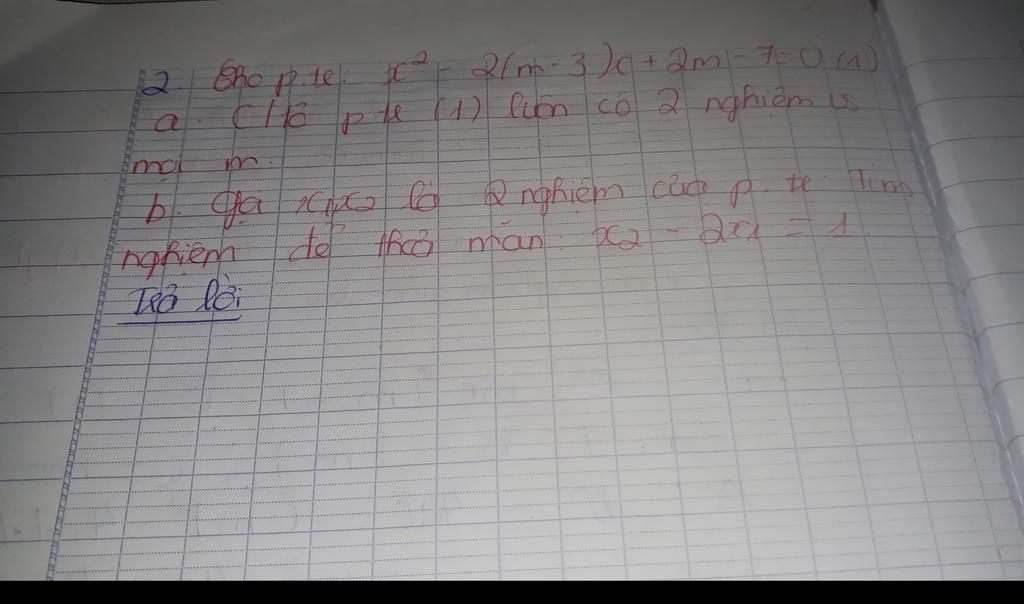 2. Cho p.tr: x² - 2(m-3)x + 2m - 7 = 0 (1)
a. C/tỏ p.tr (1) luôn có 2 nghiệm vs
mọi m.
b. Gọi x1, x2 là 2 nghiệm của p.tr. Tìm
nghiệm để thoả mãn: x2 - 2x1 = 1.
Trả lời